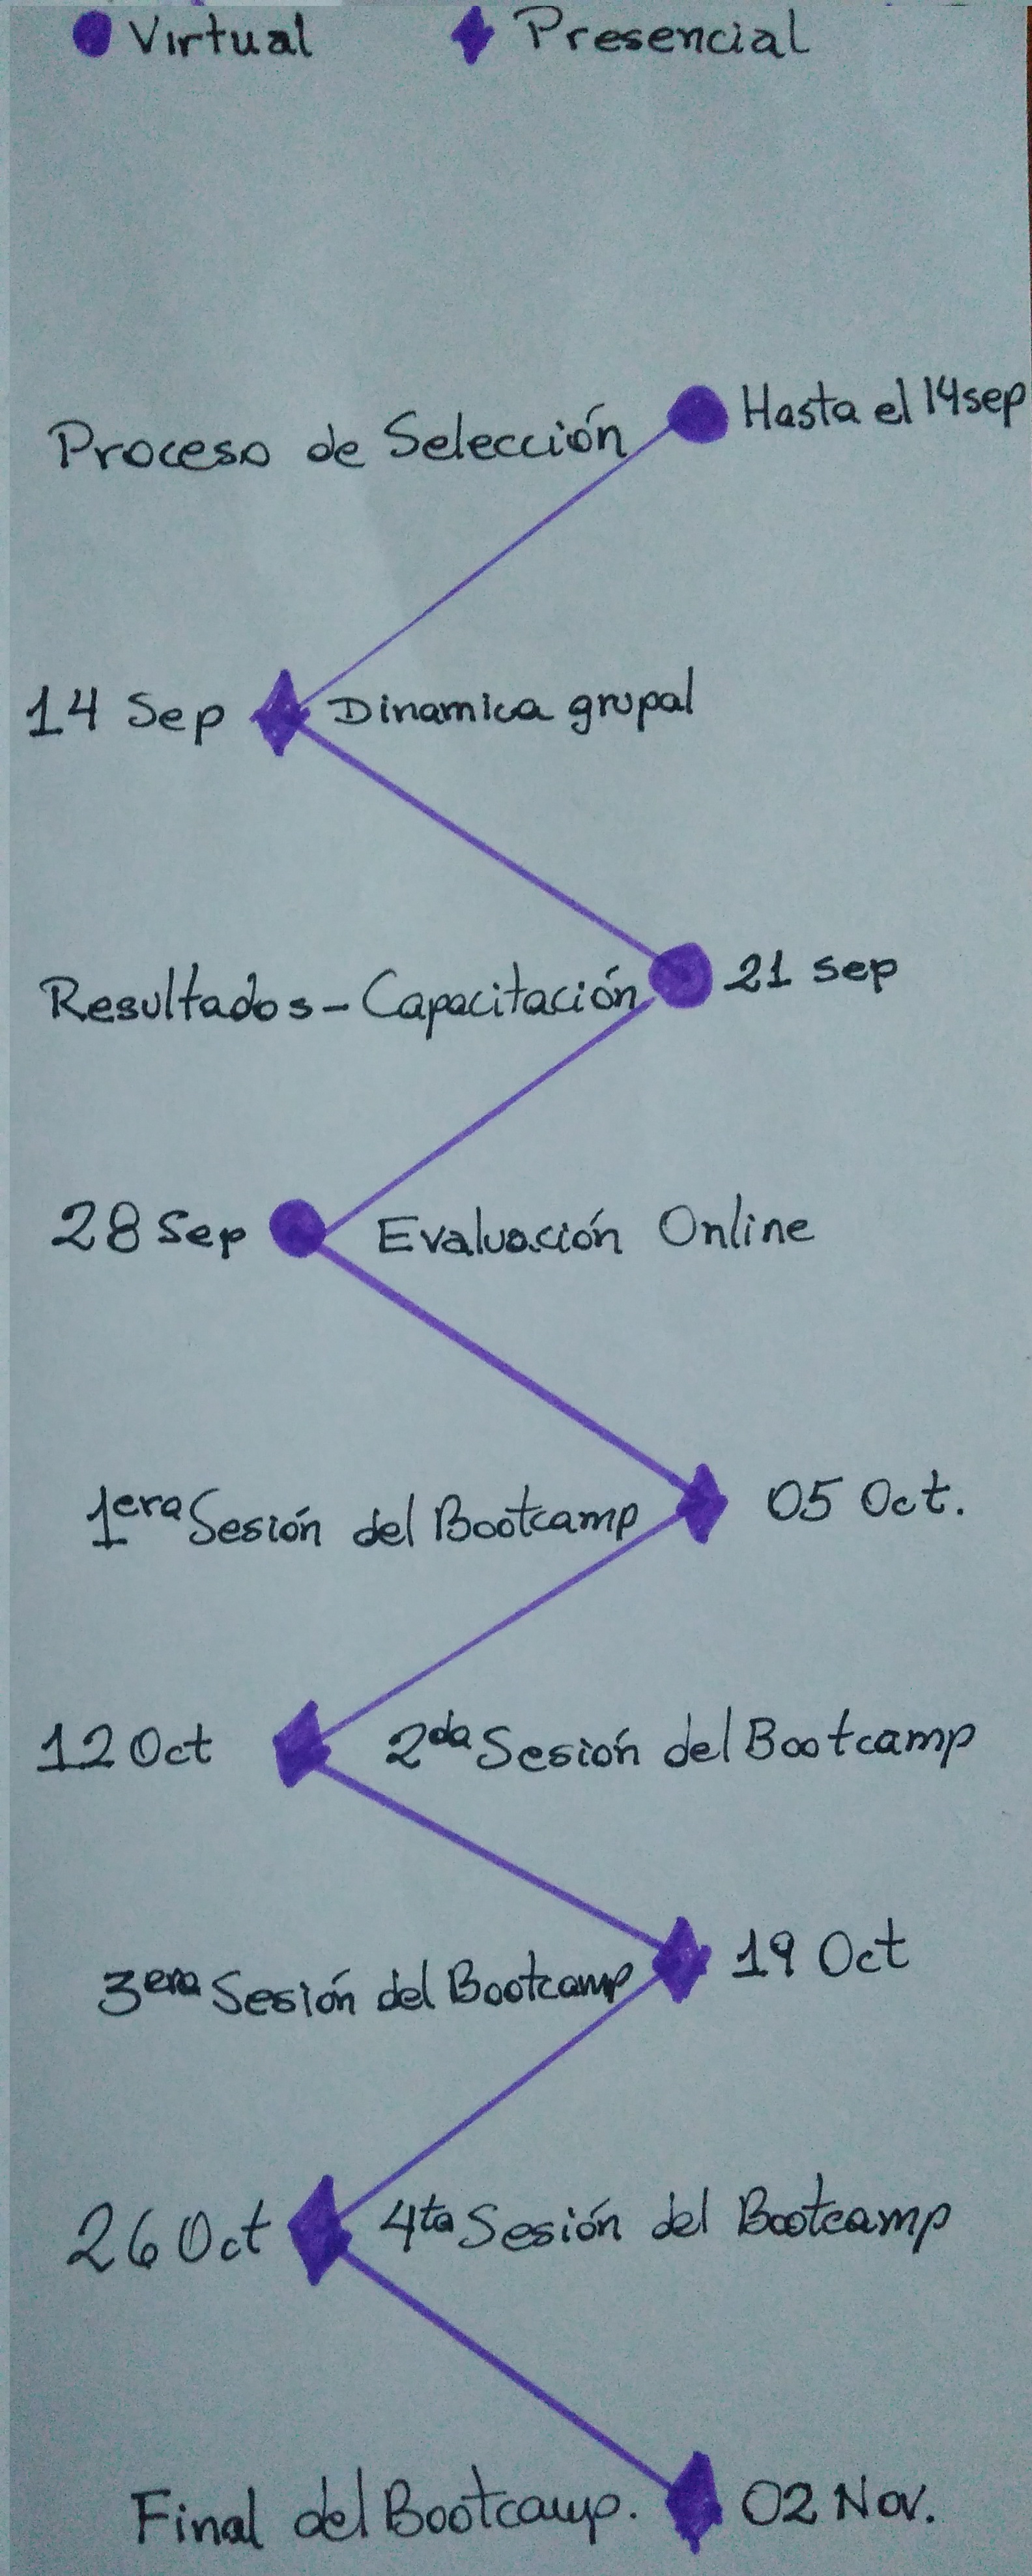 Virtual Presencial
Proceso de Selección Hasta el 14 sep
14 Sep Dinamica grupal
Resultados - Capacitación 21 sep
28 Sep Evaluación Online
1era Sesión del Bootcamp 05 Oct.
12 Oct 2da Sesión del Bootcamp
3era Sesión del Bootcamp 19 Oct
26 Oct 4ta Sesión del Bootcamp
Final del Bootcamp. 02 Nov.